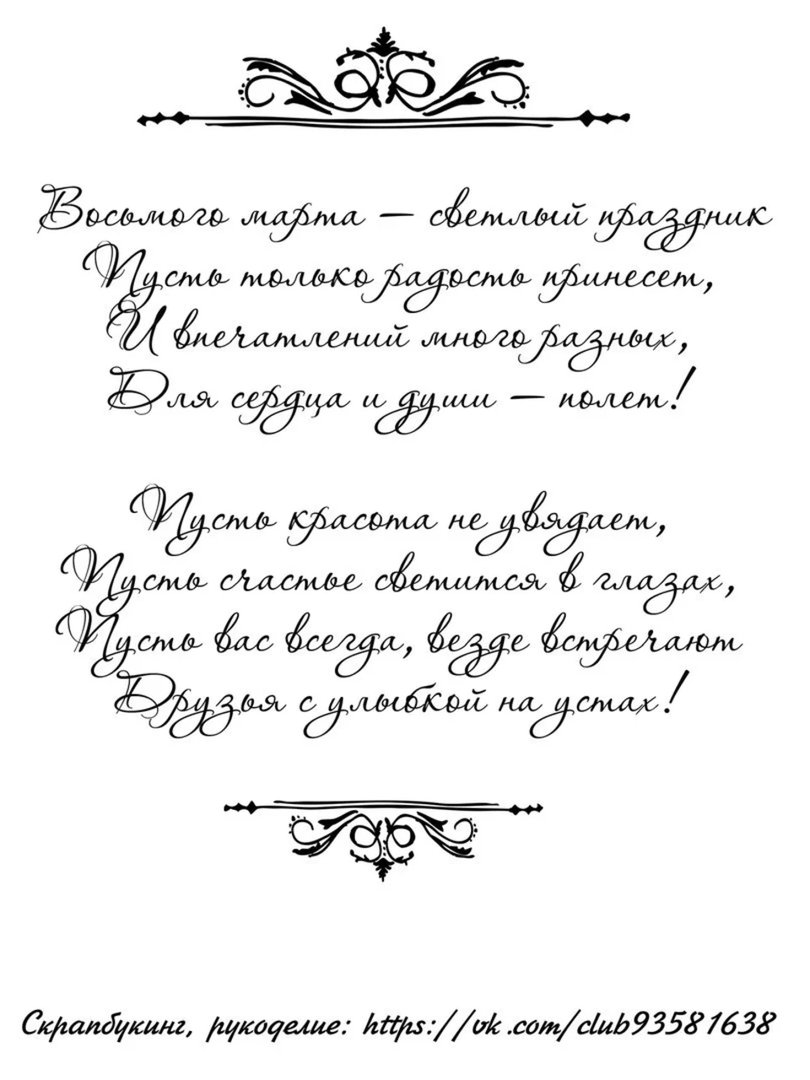 Восьмого марта — светлый праздник
Пусть только радость принесет,
И впечатлений много разных,
Для сердца и души — полет!
Пусть красота не увядает,
Пусть счастье светится в глазах,
Пусть вас всегда, везде встречают
Друзья с улыбкой на устах!
Скрапбукинг, рукоделие: https://vk.com/club93581638